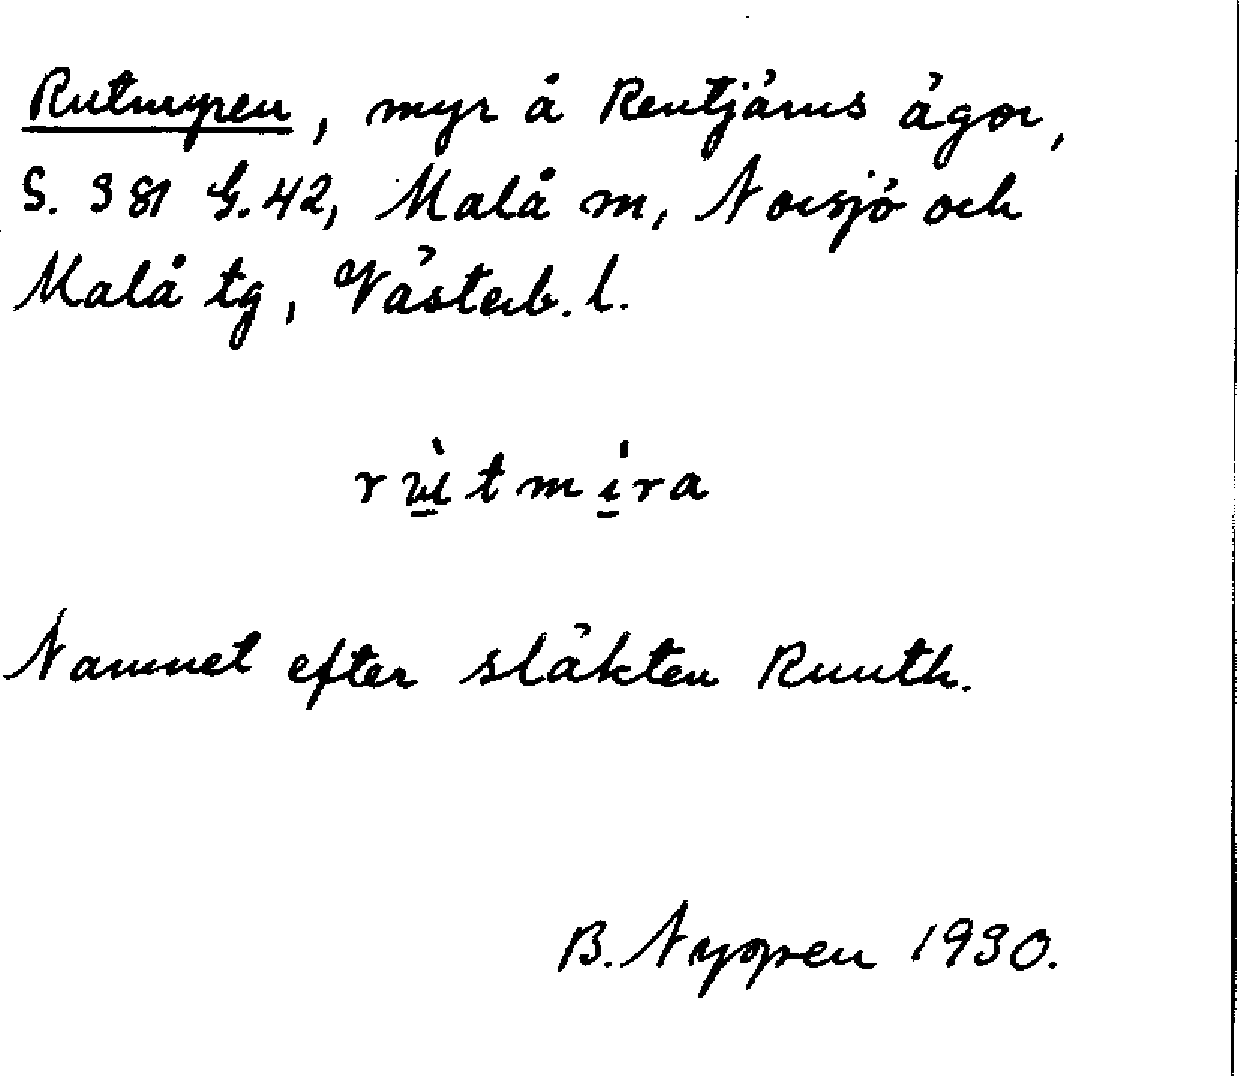 Rutmyren, myr å Rentjärns ägor,
S. 381 G. 42, Malå sn, Norsjö och
Malå tg, Västerb. l.
rùtmíra
Namnet efter släkten Ruuth.
B. 1930.